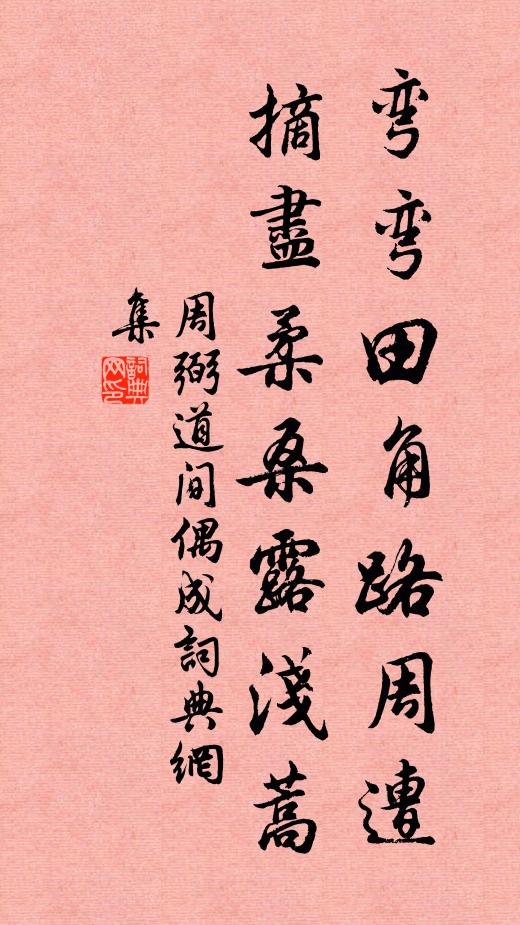 弯弯田角路周遭
摘盡柔桑露淺蒿
周弼道间偶成詞典網
集
詞典网印